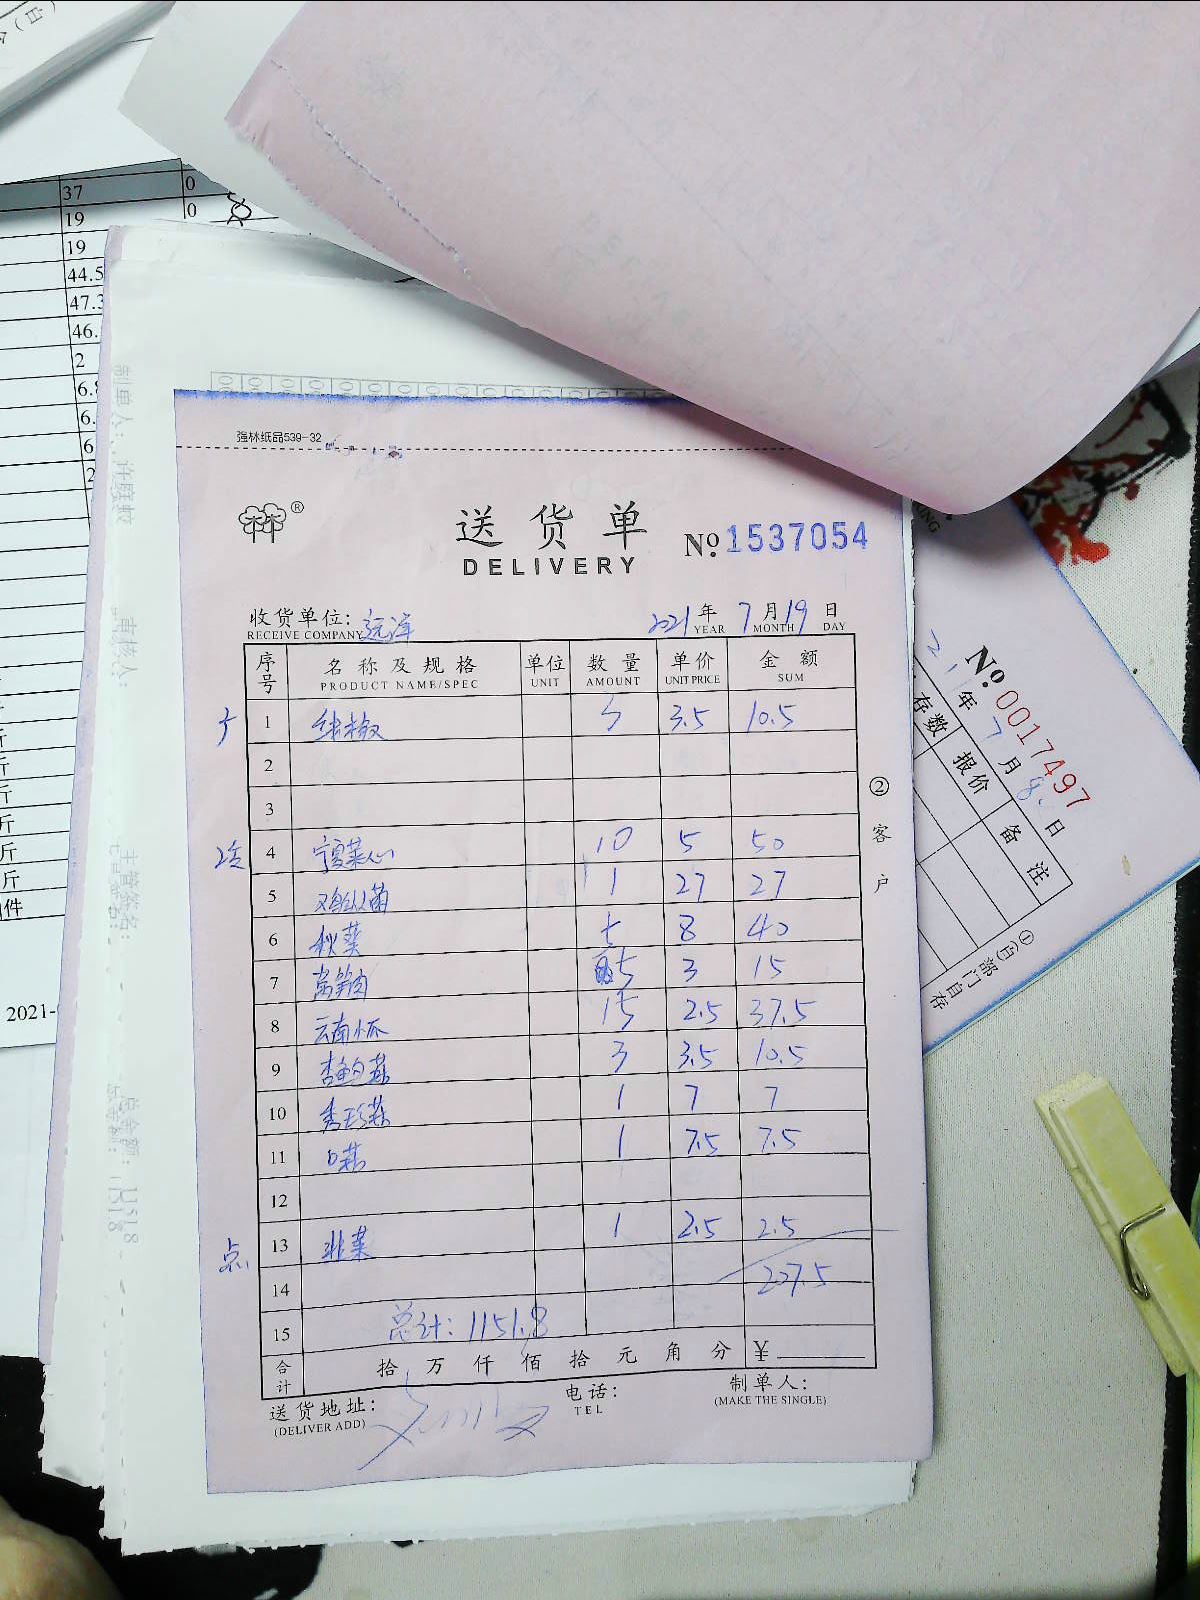 37 0
19 0
19
44.5
47.3
46.
2
6.8
6.
6
2
强林纸品539-32
送货单
DELIVERY
№ 1537054
收货单位: 远洋 2021年 7月 19日
RECEIVE COMPANY YEAR MONTH DAY
序号 名称及规格 单位 数量 单价 金额
PRODUCT NAME/SPEC UNIT AMOUNT UNIT PRICE SUM
1 线椒 3 3.5 10.5
2
3
4 宁夏菜心 10 5 50
5 鸡纵菌 1 27 27
6 秋葵 5 8 40
7 5 3 15
8 云南小瓜 15 2.5 37.5
9 杏鲍菇 3 3.5 10.5
10 秀珍菇 1 7 7
11 口菇 1 7.5 7.5
12
点 13 韭菜 1 2.5 2.5
14 207.5
15 总计: 1151.8
合计 拾 万 仟 佰 拾 元 角 分 ¥
送货地址: 电话: 制单人:
(DELIVER ADD) TEL (MAKE THE SINGLE)
②客户
№ 0017497
21年 7月 8日
存数 报价 备注
①(白)部门自存
斤
斤
斤
斤
斤
斤
件
2021-
制单人:
审核人:
主管签名:
总金额: 1151.8